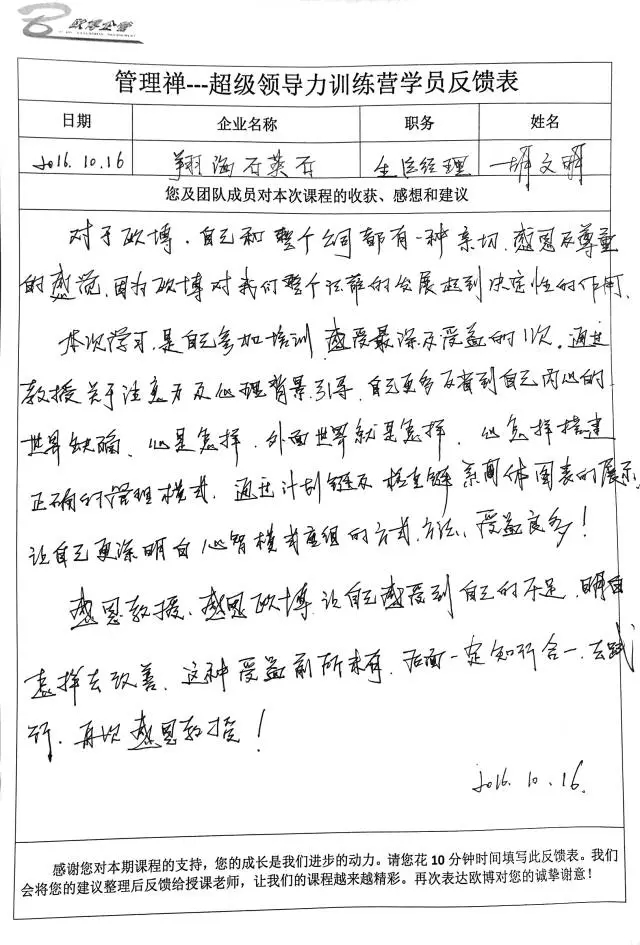 欧博企管
管理禅---超级领导力训练营学员反馈表
日期 企业名称 职务 姓名
2016.10.16 翔海石英石 生产经理 胡文明
您及团队成员对本次课程的收获、感想和建议
对于欧博,自己和整个公司都有一种亲切、感恩及尊重
的感觉,因为欧博对我们整个运筹的发展起到决定性的作用.
本次学习,是自己参加培训,感受最深及受益的1次。通过
教授关于注意力及心理背景引导,自己更多反省到自己内心的
世界缺确,心是怎样,外面世界就是怎样,心怎样搭建
正确的管理模式,通过计划链及检查链系图体图表的展示,
让自己更深明白心智模式重组的方式、方法、受益良多!
感恩教授、感恩欧博,让自己感受到自己的不足,明白
怎样去改善,这种受益前所未有,后面一定知行合一,去践
行,再次感恩教授!
2016.10.16.
感谢您对本期课程的支持,您的成长是我们进步的动力。请您花 10 分钟时间填写此反馈表。我们
会将您的建议整理后反馈给授课老师,让我们的课程越来越精彩。再次表达欧博对您的诚挚谢意!